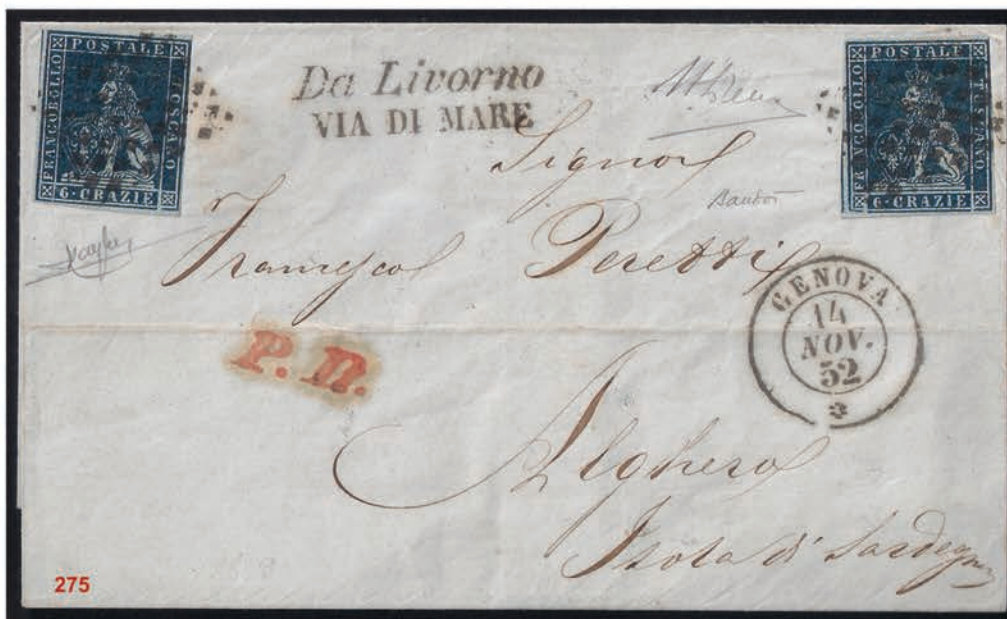 FRANCOBOLLO
POSTALE
TOSCANO
6·CRAZIE
Da Livorno
VIA DI MARE
FRANCOBOLLO
POSTALE
TOSCANO
6·CRAZIE
Signor
Francesco Peretti
GENOVA
14
NOV.
52
P. D.
Alghero
Isola di Sardegna
275